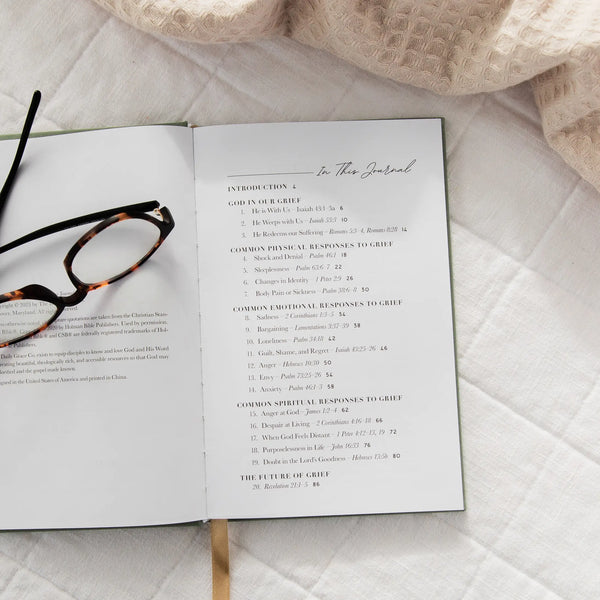 Copyright © 2023 by The
over, Maryland. All rights reserved.
otherwise noted, quotations are taken from the Christian Stan-
2020 by Holman Bible Publishers. Used by permission.
Bible®, and CSB® are federally registered trademarks of Hol-
Publishers.
Daily Grace Co. exists to equip disciples to know and love God and His Word
creating beautiful, theologically rich, and accessible resources so that God may
glorified and the gospel made known.
Designed in the United States of America and printed in China.
In This Journal
INTRODUCTION 4
GOD IN OUR GRIEF
1. He is With Us – Isaiah 43:1–5a 6
2. He Weeps with Us – Isaiah 53:3 10
3. He Redeems our Suffering – Romans 5:3–4, Romans 8:28 14
COMMON PHYSICAL RESPONSES TO GRIEF
4. Shock and Denial – Psalm 46:1 18
5. Sleeplessness – Psalm 63:6–7 22
6. Changes in Identity – 1 Peter 2:9 26
7. Body Pain or Sickness – Psalm 38:6–8 30
COMMON EMOTIONAL RESPONSES TO GRIEF
8. Sadness – 2 Corinthians 1:3–5 34
9. Bargaining – Lamentations 3:37–39 38
10. Loneliness – Psalm 34:18 42
11. Guilt, Shame, and Regret – Isaiah 43:25 46
12. Anger – Hebrews 10:30 50
13. Envy – Psalm 73:25–26 54
14. Anxiety – Psalm 46:1–3 58
COMMON SPIRITUAL RESPONSES TO GRIEF
15. Anger at God – James 1:2–4 62
16. Despair at Living – 2 Corinthians 4:16–18 66
17. When God Feels Distant – 1 Peter 4:12–13, 19 72
18. Purposelessness in Life – John 16:33 76
19. Doubt in the Lord's Goodness – Hebrews 13:5b 80
THE FUTURE OF GRIEF
20. Revelation 21:1–5 86